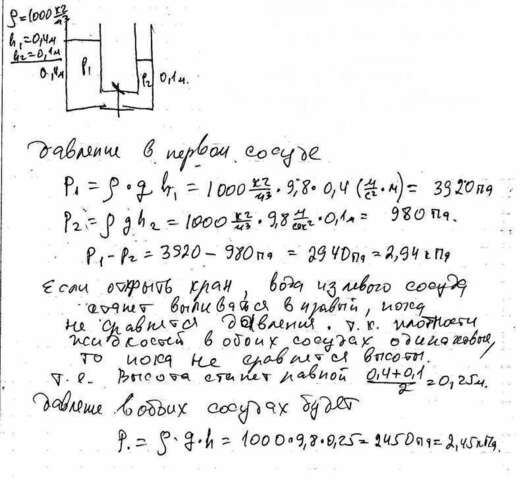 ρ=1000 кг/м³
h₁=0,4м
h₂=0,1м
0,4м P₁ P₂ 0,1м.
Давление в первом сосуде
P₁ = ρ·g h₁ = 1000 кг/м³ · 9,8 · 0,4 (м/с² · м) = 3920 па
P₂ = ρ g h₂ = 1000 кг/м³ · 9,8 м/сек² · 0,1м = 980 па.
P₁ - P₂ = 3920 - 980 па = 2940 па = 2,94 кПа
Если открыть кран, вода из левого сосуда
станет выливаться в правый, пока
не сравняются давления. т.к. плотности
жидкостей в обоих сосудах одинаковые,
то пока не сравняются высоты.
т.е. Высота станет равной (0,4+0,1)/2 = 0,25м.
Давление в обоих сосудах будет
P. = ρ·g·h = 1000·9,8·0,25 = 2450 Па = 2,45 кПа.